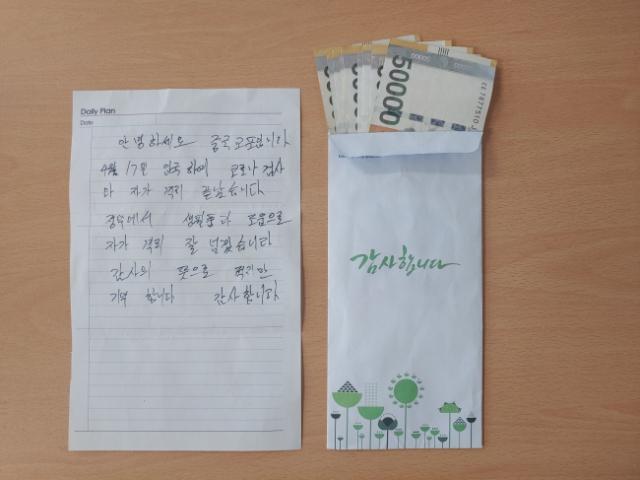 Daily Plan
Date
안녕하세요 중국 교포입니다
4월 17일 입국 하여 코로나 검사
다 자가 격리 끝났습니다
정부에서 생필품과 도움으로
자가 격리 잘 넘겼습니다
감사의 뜻으로 적지만
합니다 감사합니다
50000
감사합니다